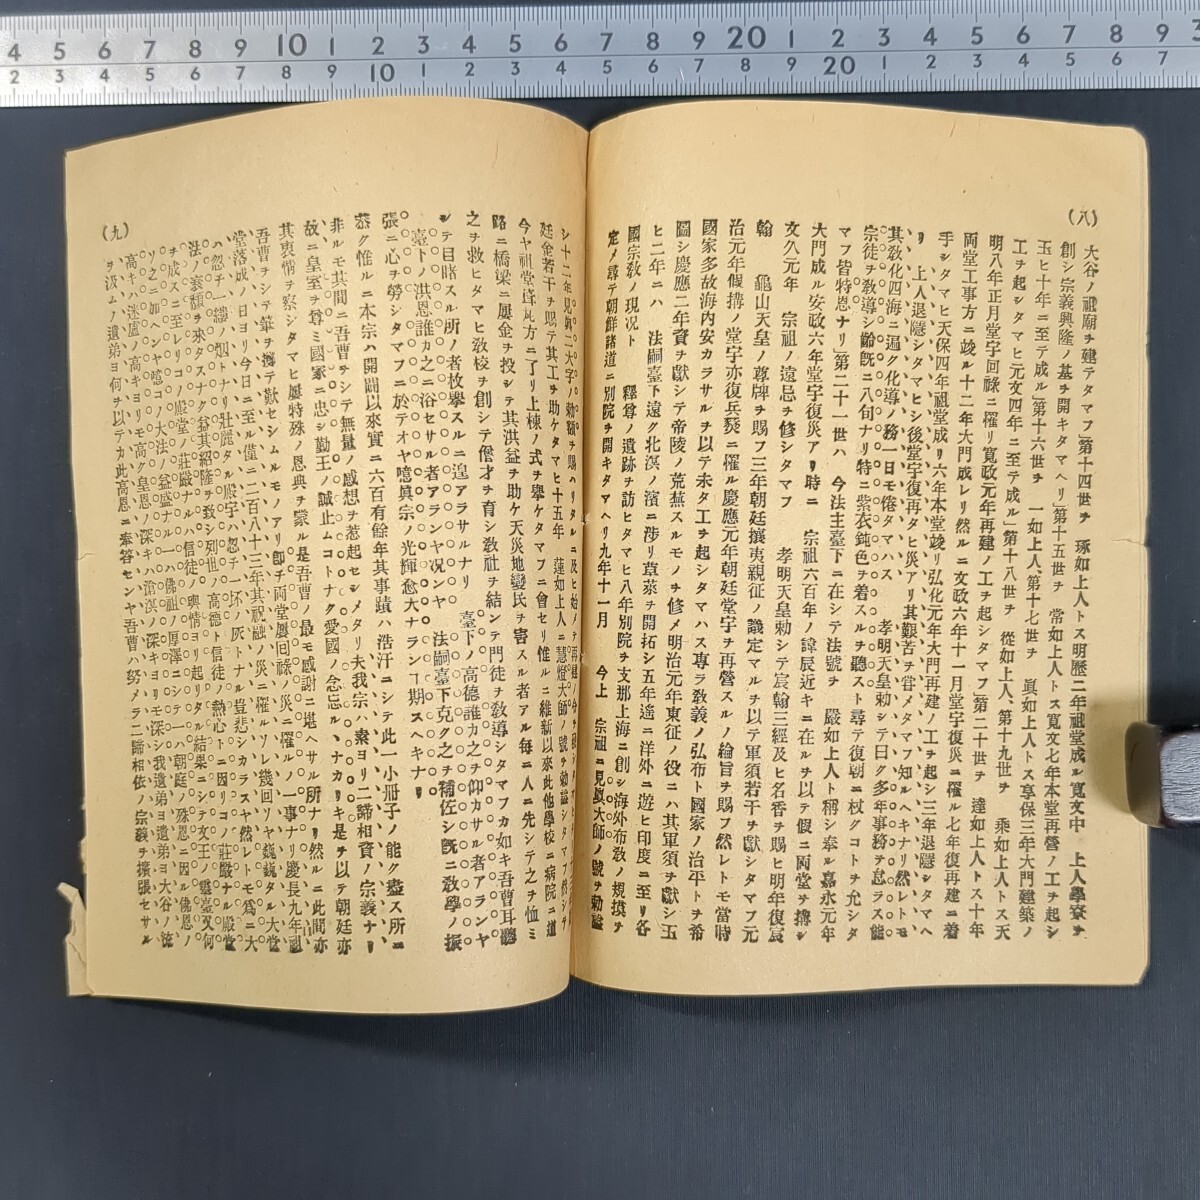 (八)
大谷ノ祖廟ヲ建テタマフ」第十四世ヲ 琢如上人トス明歷二年祖堂成ル寬文中 上人學寮ヲ
創シ宗義興隆ノ基ヲ開キタマヘリ」第十五世ヲ 常如上人トス寬文七年本堂再營ノ工ヲ起シ
玉ヒ十年ニ至テ成ル」第十六世ヲ 一如上人、第十七世ヲ 眞如上人トス享保三年大門建築ノ
工ヲ起シタマヒ元文四年ニ至テ成ル」第十八世ヲ 從如上人、第十九世ヲ 乘如上人トス天
明八年正月堂宇回祿ニ罹リ寬政元年再建ノ工ヲ起シタマフ」第二十世ヲ 達如上人トス十年
兩堂工事方ニ竣ル十二年大門成レリ然ルニ文政六年十一月堂宇復災ニ罹ル七年復再建ニ着
手シタマヒ天保四年祖堂成リ六年本堂竣リ弘化元年大門再建ノ工ヲ起シ三年退隱シタマヘ
リ 上人退隱シタマヒシ後堂宇復再タヒ災アリ其艱苦ヲ甞メタマフ知ルヘキナリ然レトモ
其敎化四海ニ遍ク化導ノ務一日モ倦タマハス 孝明天皇勅シテ曰ク多年事務ヲ怠ラス能
宗徒ヲ敎導シ齡旣ニ八旬ナリ特ニ紫衣鈍色ヲ着スルヲ聽スト尋テ復朝ニ杖クコトヲ允シタ
マフ皆特恩ナリ」第二十一世ハ 今法主臺下ニ在シテ法號ヲ 嚴如上人ト稱シ奉ル嘉永元年
大門成ル安政六年堂宇復災アリ時ニ 宗祖六百年ノ諱辰近キニ在ルヲ以テ假ニ兩堂ヲ搆シ
文久元年 宗祖ノ遠忌ヲ修シタマフ 孝明天皇勅シテ宸翰三經及ヒ名香ヲ賜ヒ明年復宸
翰 龜山天皇ノ尊牌ヲ賜フ三年朝廷攘夷親征ノ議定マルヲ以テ軍須若干ヲ獻シタマフ元
治元年假搆ノ堂宇亦復兵燹ニ罹ル慶應元年朝廷堂宇ヲ再營スルノ綸旨ヲ賜フ然レトモ當時
國家多故海內安カラサルヲ以テ未タ工ヲ起シタマハス專ラ敎義ノ弘布ト國家ノ治平トヲ希
圖シ慶應二年資ヲ獻シテ帝陵ノ荒蕪スルモノヲ修メ明治元年東征ノ役ニハ其軍須ヲ獻シ玉
ヒ二年ニハ 法嗣臺下遠ク北溟ノ濱ニ涉リ草萊ヲ開拓シ五年遙ニ洋外ニ遊ヒ印度ニ至リ各
國宗敎ノ現況ト 釋尊ノ遺跡ヲ訪ヒタマヒ八年別院ヲ支那上海ニ創シ海外布敎ノ規摸ヲ
定メ尋テ朝鮮諸道ニ別院ヲ開キタマヘリ九年十一月 今上 宗祖ニ見眞大師ノ號ヲ勅謚
シ十二年見眞ノ二大字ノ勅額ヲ賜ハリタルニ及ヒ始メテ再建ノ
廷金若干ヲ賜テ其工ヲ助ケタマヒ十五年 蓮如上人ニ慧燈大師ノ號ヲ勅謚シタマフ然シテ
今ヤ祖堂建
方ニ了リ上棟ノ式ヲ擧ケタマフニ會セリ惟ルニ維新以來此他學校ニ病院ニ道
路ニ橋梁ニ屢金ヲ投シテ其洪益ヲ助ケ天災地變民ヲ害スル者アル每ニ人ニ先シテ之ヲ恤ミ
之ヲ救ヒタマヒ敎校ヲ創シテ僧才ヲ育シ敎社ヲ結ンテ門徒ヲ敎導シタマフカ如キ吾曹耳聽
シテ目睹スル所ノ者枚擧スルニ遑アラサルナリ 臺下ノ高德誰カ之ヲ仰カサル者アランヤ
臺下ノ洪恩誰カ之ニ浴セサル者アランヤ况ンヤ 法嗣臺下克ク之ヲ補佐シ旣ニ敎學ノ振
張ニ心ヲ勞シタマフニ於テオヤ噫眞宗ノ光輝愈大ナランヿ期スヘキナリ
恭ク惟ルニ本宗ハ開闢以來實ニ六百有餘年其事蹟ハ浩汗ニシテ此一小册子ノ能ク盡ス所ニ
非ルモ其間ニ吾曹ヲシテ無量ノ感想ヲ惹起セシメタリ夫我宗ハ素ヨリ二諦相資ノ宗義ナリ
故ニ皇室ヲ尊ミ國家ニ忠シ勤王ノ誠止ムコトナク愛國ノ念忘ル、ナカリキ是ヲ以テ朝廷亦
其衷情ヲ察シタマヒ屢特殊ノ恩典ヲ蒙ル是吾曹ノ最モ感謝ニ堪ヘサル所ナリ然ルニ此間亦
吾曹ヲシテ筆ヲ擲テ歎セシムルモノアリ卽チ兩堂屢回祿ノ災ニ罹ルノ一事ナリ慶長九年祖
堂落成ノ日ヨリ今日ニ至ル僅ニ二百八十三年其祝融ノ災ニ罹ル
幾回ソヤ巍巍タル大堂
ハ忽チ一縷ノ烟トナリ壯麗タル殿宇ハ忽チ一坏ノ灰トナル豈悲シカラスヤ然レトモ爲ニ大
法ノ衰頽ヲ來タスナク益其紹隆ヲ致シ列世ノ高德ト信徒ノ熱心トニ因リコノ莊嚴ナル殿堂
ヲ成スニ至レリコノ殿堂ノ莊嚴ナルハ信徒ノ輿情ヨリ起リタル結果ニシテ文王ノ靈臺又何
ソ之ニ加ヘンヤ噫コノ大法ノ益盛ナル一ハ佛祖ノ厚澤ニシテ一ハ朝庭ノ殊恩ニ因ル佛恩ノ
高キハ迷盧ノ高キヨリモ高ク皇恩ノ深キハ滄溟ノ深キヨリモ深シ我遺弟ヨ遺弟ヨ大谷ノ流
ヲ汲ムノ遺弟ヨ何ヲ以テカ此高恩ニ奉答センヤ吾曹ハ努メテ二諦相依ノ宗義ヲ擴張セサル
(九)